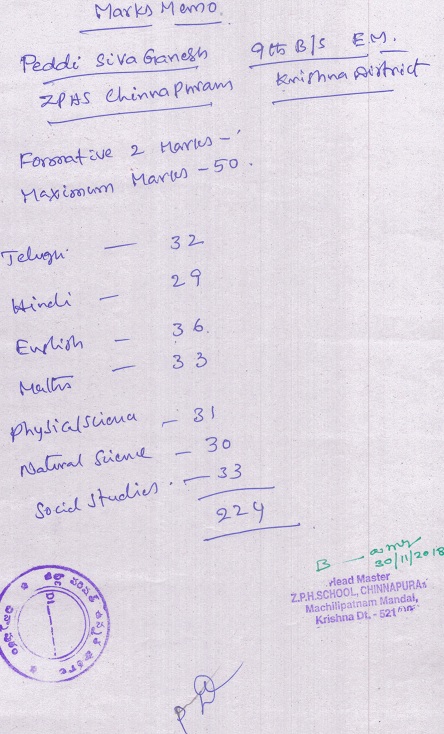 Marks Memo.
Peddi Siva Ganesh 9th B/S E.M.
ZPHS Chinnapuram Krishna District
Formative 2 Marks -
Maximum Marks - 50.
Telugu. — 32
Hindi — 29
English — 36
Maths — 33
Physical Science — 31
Natural Science — 30
Social Studies. — 33
224
30/11/2018
Head Master
Z.P.H.SCHOOL, CHINNAPURAM
Machilipatnam Mandal,
Krishna Dt. - 521